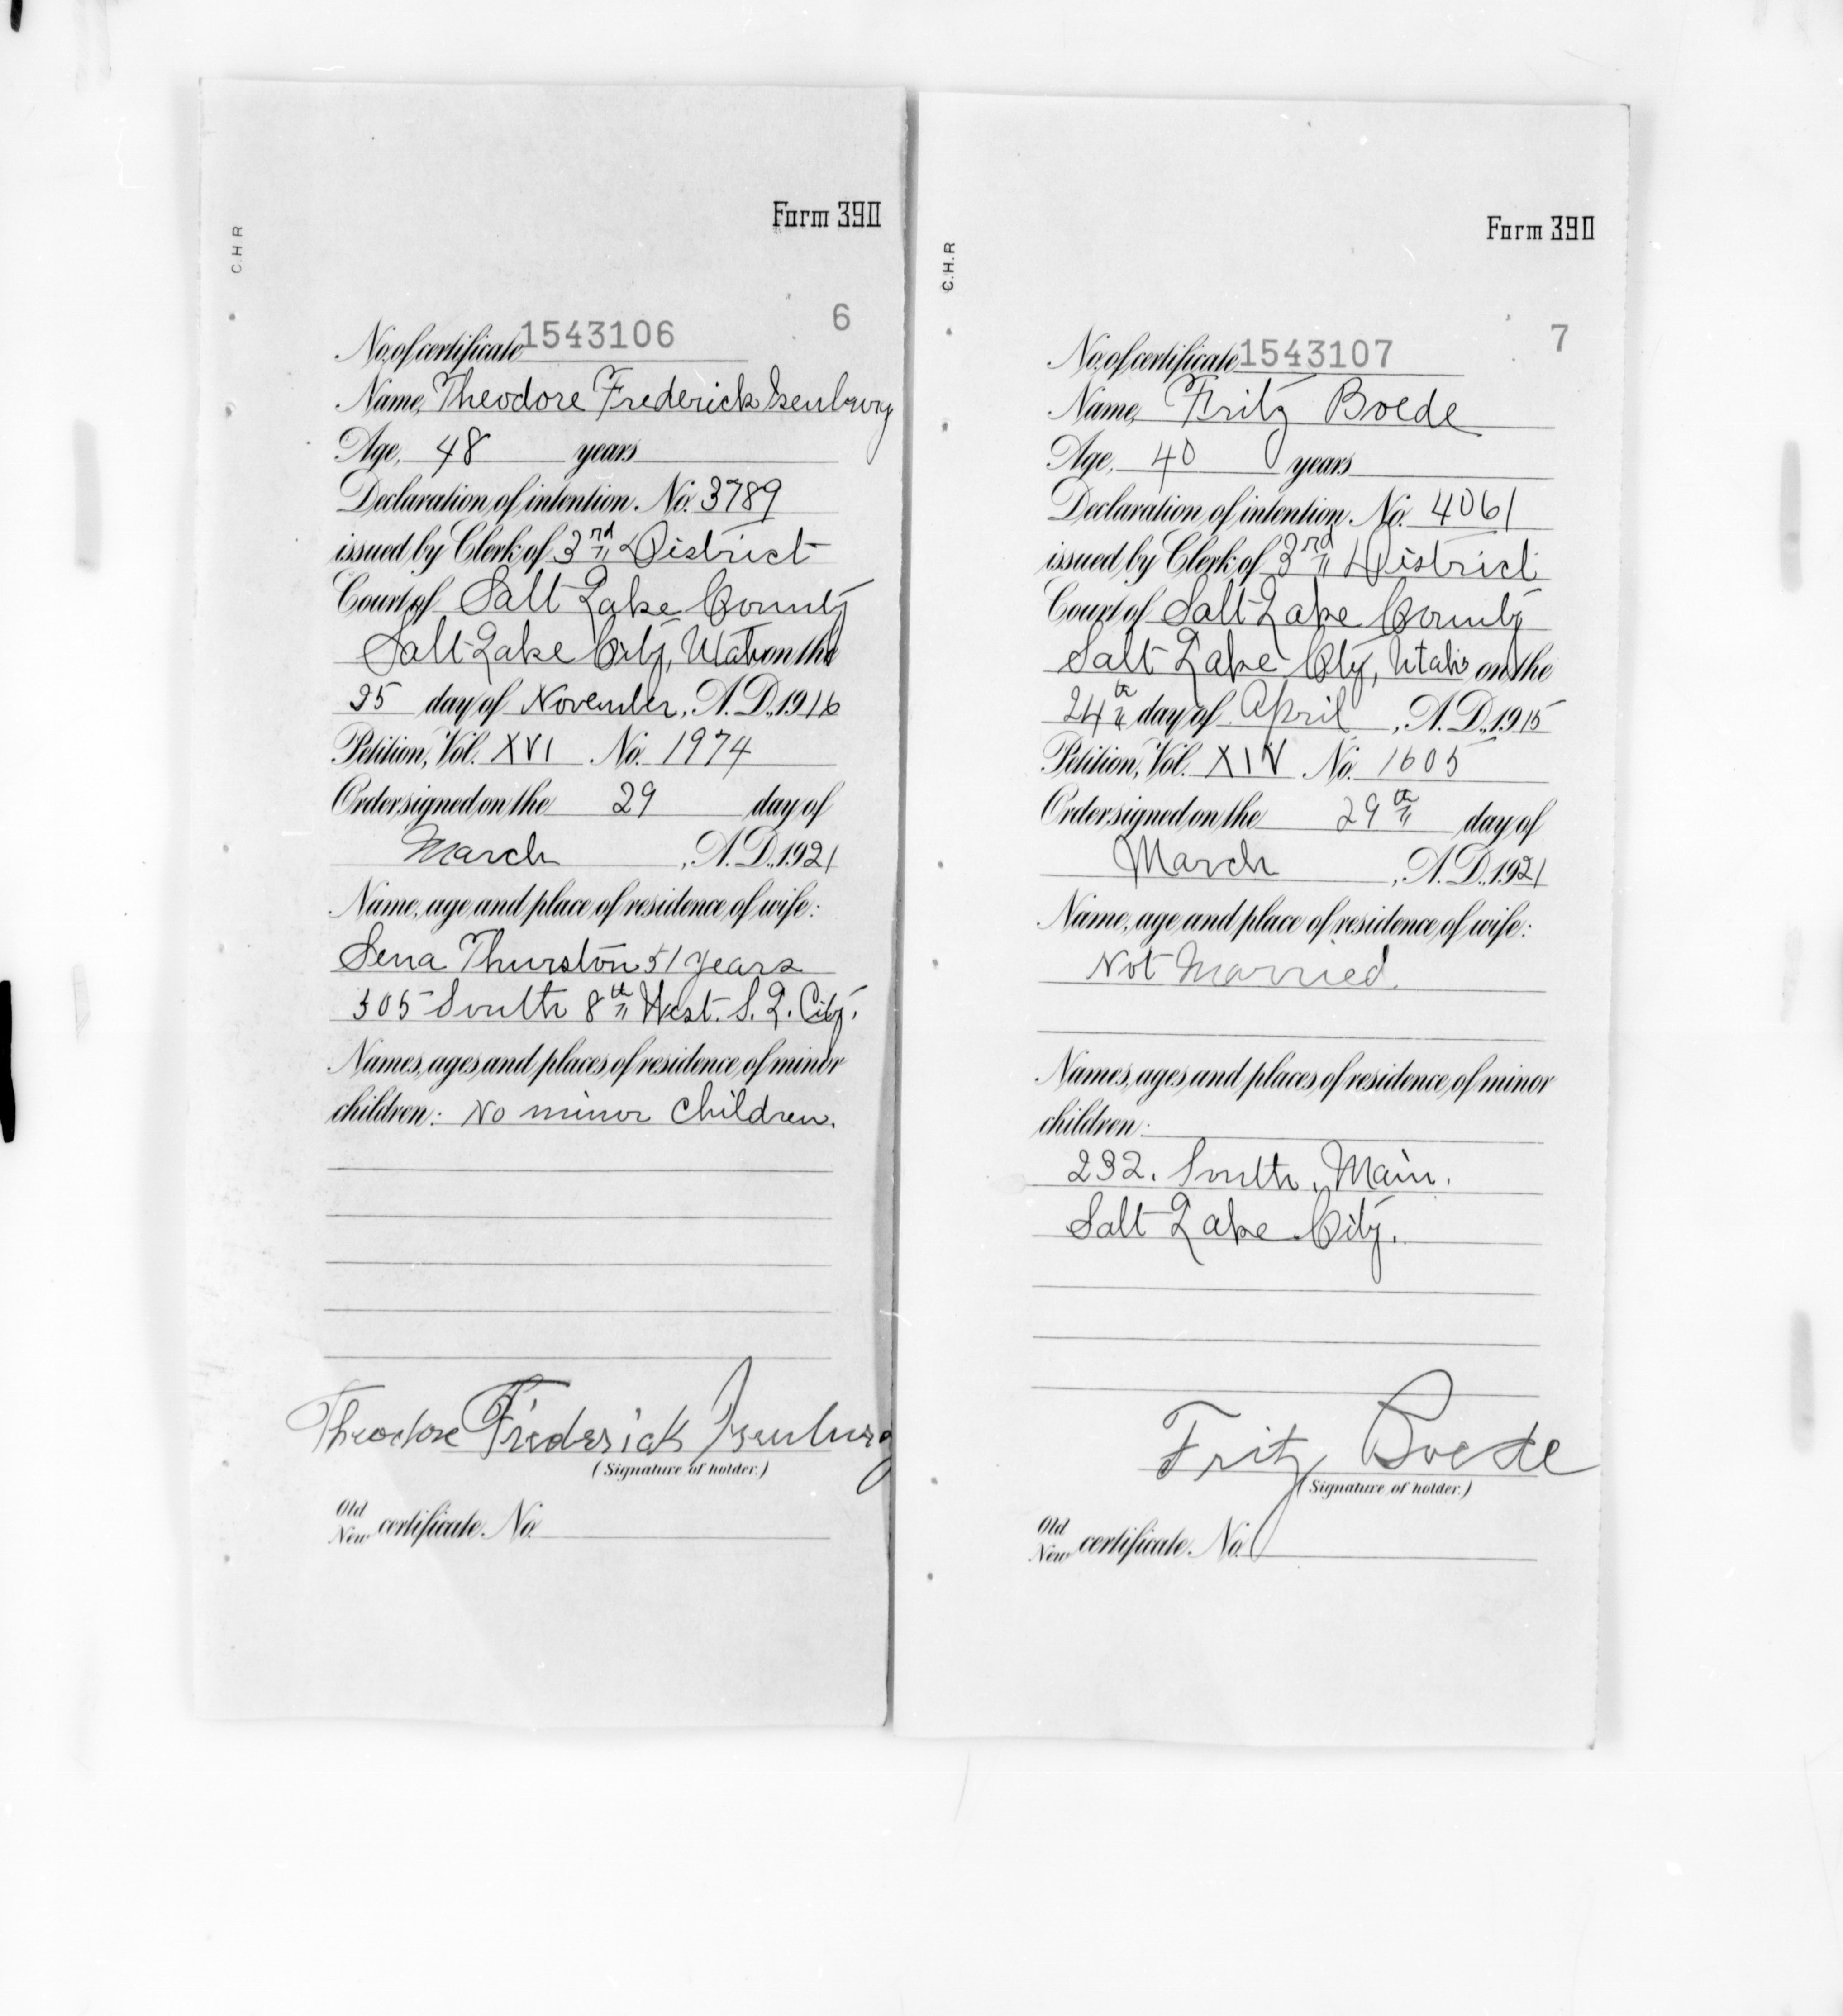 C.H R
Form 390
6
No. of certificate 1543106
Name, Theodore Frederick Isenburg
Age, 48 years
Declaration of intention. No. 3789
issued by Clerk of 3rd District
Court of Salt Lake County
Salt Lake City, Utah on the
25 day of November, A.D., 1916
Petition, Vol. XVI No. 1974
Order signed on the 29 day of
March, A.D., 1921
Name, age and place of residence of wife:
Sena Thurston 51 years
305 South 8th West. S. L. City.
Names, ages and places of residence of minor
children: No minor Children.
Theodore Frederick Isenburg
(Signature of holder.)
Old
New certificate No.
C.H.R
Form 390
7
No. of certificate 1543107
Name, Fritz Boede
Age, 40 years
Declaration of intention. No. 4061
issued by Clerk of 3rd District
Court of Salt Lake County
Salt Lake City, Utah on the
24th day of April, A.D., 1915
Petition, Vol. XIV No. 1605
Order signed on the 29th day of
March, A.D., 1921
Name, age and place of residence of wife:
Not Married.
Names, ages and places of residence of minor
children:
232. South. Main.
Salt Lake City.
Fritz Boede
(Signature of holder.)
Old
New certificate No.